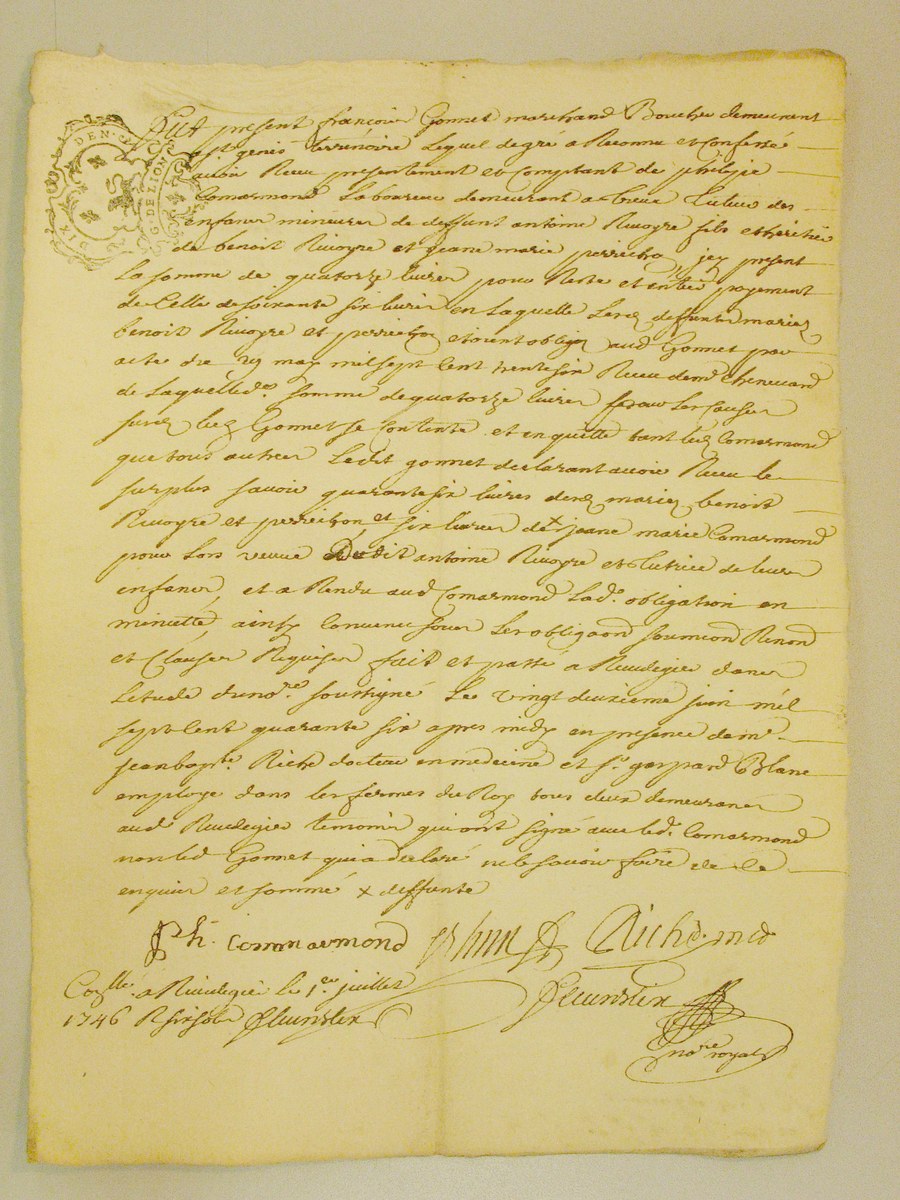 DIX DEN.ERS
G. DE LION
Fut present françois Gonnet marchand Boucher demeurant
a st. genis terrenoire Lequel de gré a Reconnu et Confessé
avoir Receu presentement et Comptant de philipe
Comarmond Laboureur demeurant a tuteur des
enfans mineurs de deffunt antoine Rivoyre fils et heritier
de benoit Rivoyre et jeane marie perrichon jcy present
La somme de quatorze livres pour Reste et entier payement
de Celle de soixante six livres en Laquelle Lesd deffunts mariez
benoit Rivoyre et perrichon etoient obligez aud Gonnet par
acte du may mil sept Cent trente six Receu de me Chenevard
de Laquelle de. somme de quatorze livres Les Causes
led Gonnet se Contente et en quitte tant led Comarmond
que tous autres Ledit gonnet declarant avoir Receu le
surplus savoir quarante six livres desd mariez benoit
Rivoyre et perrichon et six livres de x jeane marie Comarmond
pour Lors veuve Dudit antoine Rivoyre et tutrice de leurs
enfans, et a Rendu aud Comarmond Lade. obligation en
minutte, ainsy Convenu sous Les obligaons soumions Renons
et Clauses Requises fait et passé a Rivedegier dans
Letude du nore. soussigné Le vingt deuxieme juin mil
sept Cent quarante six apres midy en presence de mr.
jean bapte. Riche docteur en medecine et sr. gaspard Blanc
employé dans les fermes du Roy tous deux demeurants
aud Rivedegier temoins qui ont signé avec led. Comarmond
non led Gonnet qui a declaré ne le savoir faire de ce
enquis et sommé x deffunte
Ph. Commarmond Blanc Riche med
Conllé. a Rivedegier le 1er juillet
1746 R six sols Fleurdelix
Fleurdelix
nore royal